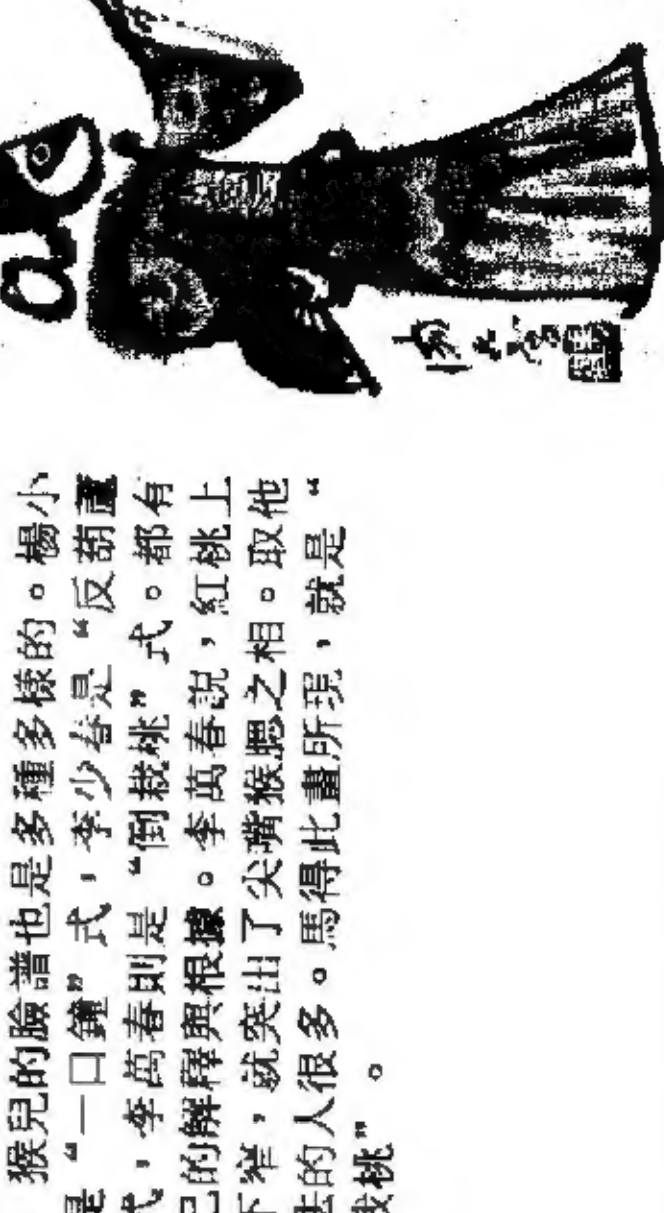 猴兒的臉譜也是多種多樣的。楊小
是“一口鐘”式，李少春是“反葫蘆
式，李萬春則是“倒栽桃”式。都有
己的解釋與根據。李萬春說，紅桃上
下窄，就突出了尖嘴猴腮之相。取他
法的人很多。馬得此畫所現，就是“
栽桃”。